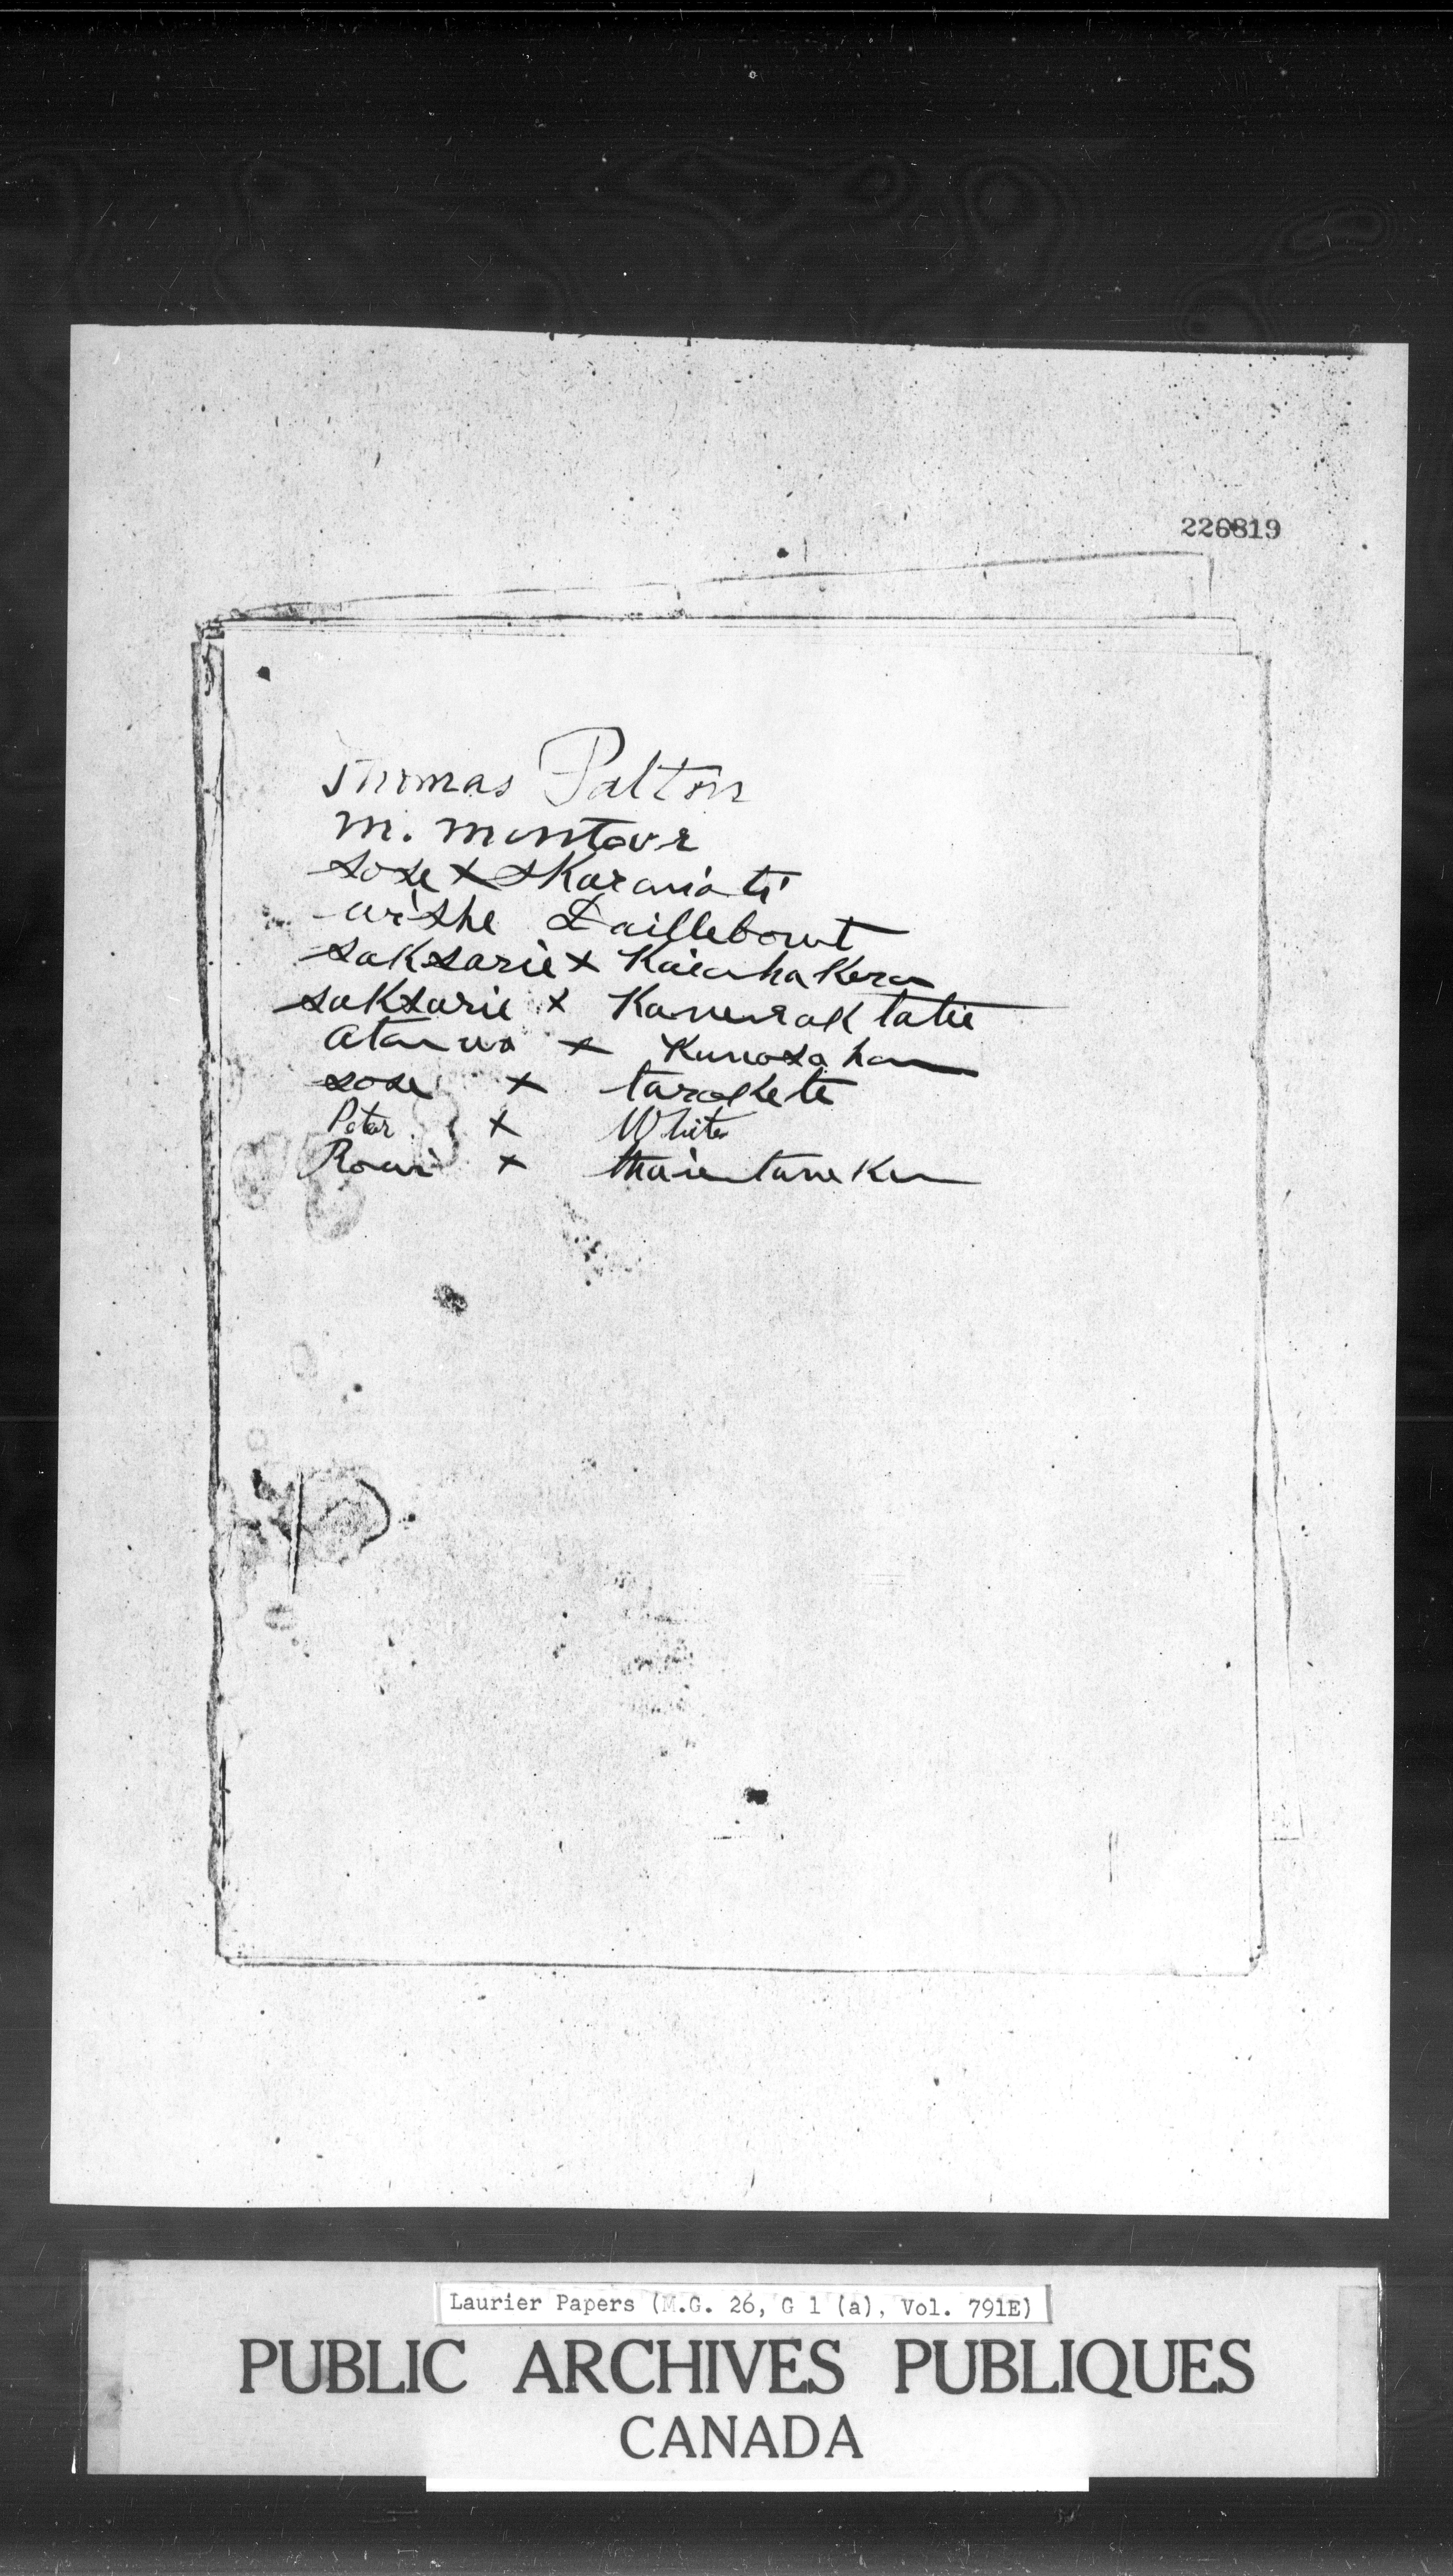 226819
Thomas Patton
M. Montour
sose x skaroniati
wishe Daillebout
saksarie x Kaienhakera
saksarie x Kanenraktatie
atonwa x Kanosahon
sose x tarokete
Peter x White
Rowi x
Laurier Papers (M.G. 26, G 1 (a), Vol. 791E)
PUBLIC ARCHIVES PUBLIQUES
CANADA